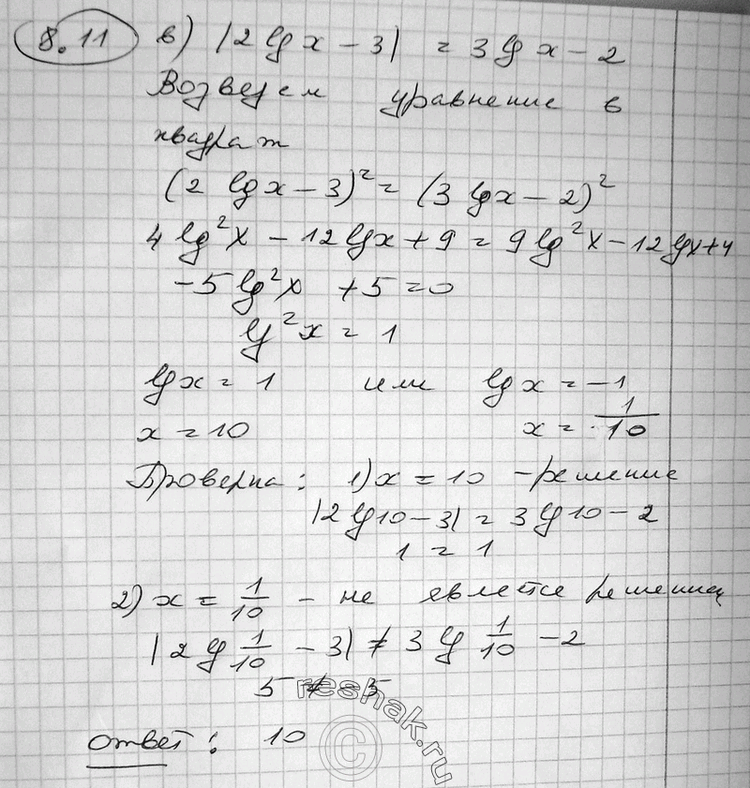 8.11 в) |2 lg x - 3| = 3 lg x - 2
Возведем уравнение в
квадрат
(2 lg x - 3)² = (3 lg x - 2)²
4 lg² x - 12 lg x + 9 = 9 lg² x - 12 lg x + 4
-5 lg² x + 5 = 0
lg² x = 1
lg x = 1 или lg x = -1
x = 10 x = 1/10
Проверка: 1) x = 10 - решение
|2 lg 10 - 3| = 3 lg 10 - 2
1 = 1
2) x = 1/10 - не является решением
|2 lg 1/10 - 3| ≠ 3 lg 1/10 - 2
5 ≠ -5
Ответ: 10
reshak.ru
©